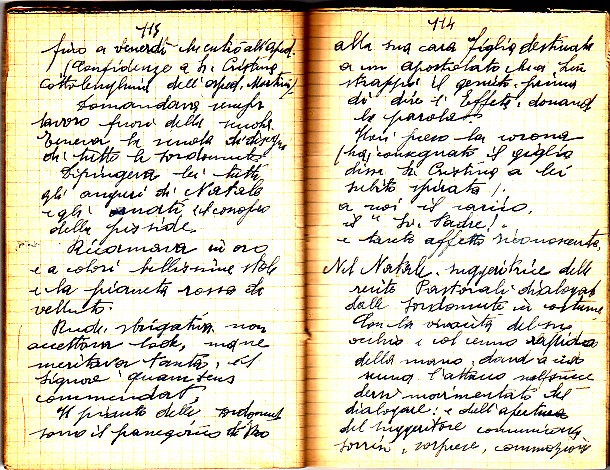 113
fino a venerdì che entrò all'Osped.
(Confidenze a Sr. Cristina
Cottolenghina dell'osped. Martini)
Domandava sempre
lavoro fuori della scuola.
Teneva la scuola di disegno
di tutte le sordomute
Dipingeva lei tutti
gli auguri di Natale
e gli il conopeo
della pisside.
Ricamava in oro
e a colori bellissime stole
e la pianeta rossa di
velluto.
Rude, sbrigativa non
accettava lode, ma ne
meritava tanta, el
Signore quam
commendat.
Il pianto delle sordomute
sono il panegirico di
114
alla sua cara figlia destinata
a un apostolato che
strappò il gemito prima
di dire l'Effeta, donando
la parola.
Huri la corona
(ha) consegnato il giglio
disse Sr. Cristina a lei
subito spirata).
a noi il
il " Padre!
e tanto affetto riconoscente.
Nel Natale, suggeritrice delle
recite Pastorali dialogate
dalle Sordomute in costume
Con la vivacità del suo
occhio e col cenno rapido
della mano, dava a cia
scuna l'attacco nel
dersi movimentato del
dialogare: e dell'apertura
del suggeritore comunicava
sorrisi, sorprese, commozioni